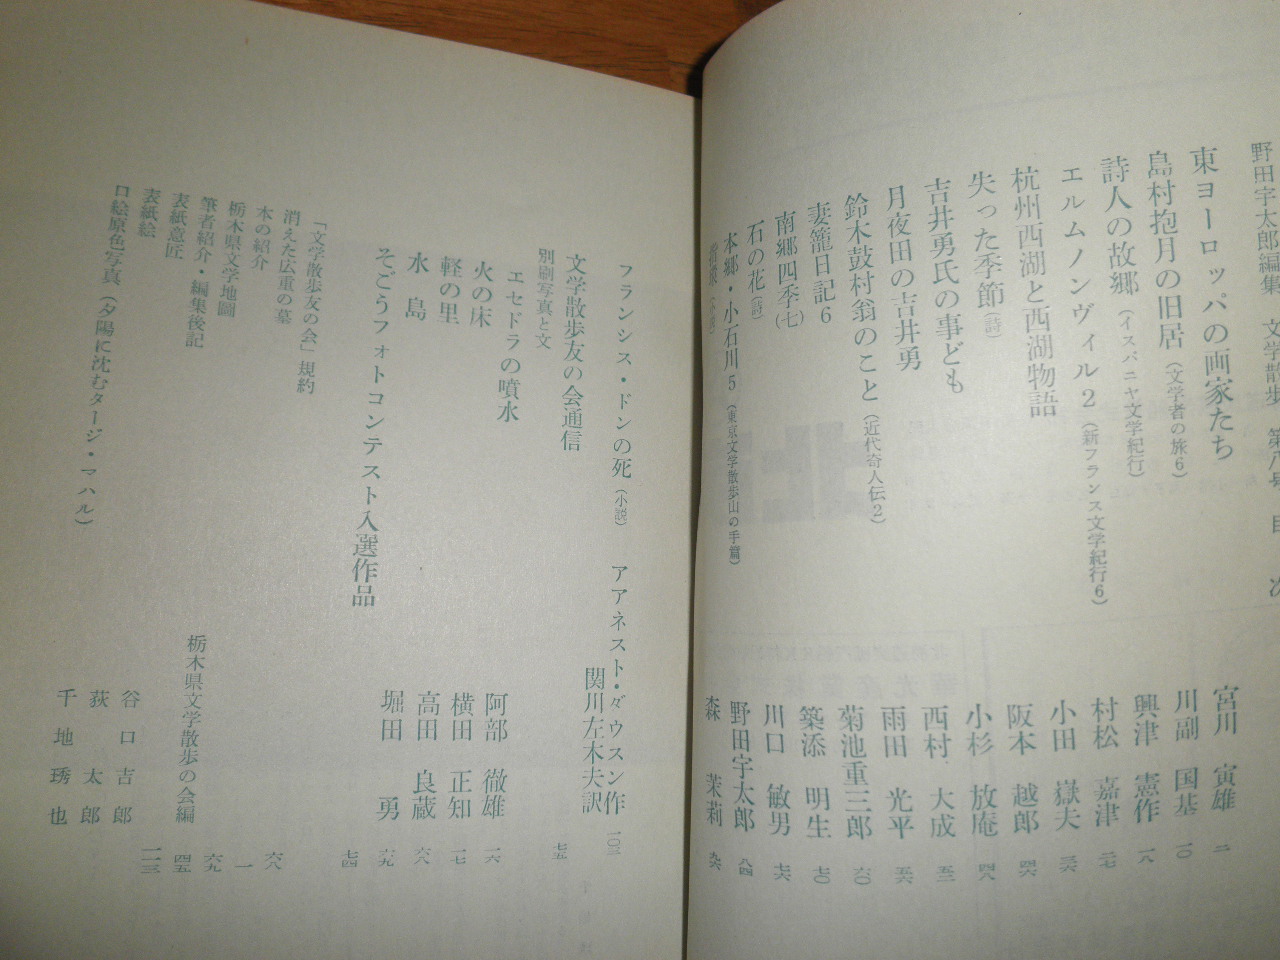 野田宇太郎編集 文学散歩 第八号 目次
東ヨーロッパの画家たち 宮川 寅雄 二
島村抱月の旧居（文学者の旅6） 川副 国基 一〇
詩人の故郷（イスパニヤ文学紀行） 興津 憲作 一八
エルムノンヴィル2（新フランス文学紀行6） 村松 嘉津 二七
杭州西湖と西湖物語 小田 嶽夫 三六
失った季節（詩） 阪本 越郎 四六
吉井勇氏の事ども 小杉 放庵 四八
月夜田の吉井勇 西村 大成 五二
鈴木鼓村翁のこと（近代奇人伝2） 雨田 光平 五六
妻籠日記6 菊池重三郎 六〇
南郷四季（七） 築添 明生 七〇
石の花（詩） 川口 敏男 七六
本郷・小石川5（東京文学散歩山の手篇） 野田宇太郎 八四
森 茉莉 九六
フランシス・ドンの死（小説） アアネスト・ダウスン作
関川左木夫訳 一〇三
文学散歩友の会通信 七五
別刷写真と文
エセドラの噴水 阿部 徹雄 一六
火の床 横田 正知 一七
軽の里 高田 良蔵 六八
水島 堀田 勇 六九
そごうフォトコンテスト入選作品 七四
「文学散歩友の会」規約
消えた広重の墓 六八
本の紹介 一
栃木県文学地圖 栃木県文学散歩の会編 六九
筆者紹介・編集後記 四五 一一三
表紙意匠 谷口吉郎
表紙絵 荻太郎
口絵原色写真（夕陽に沈むタージ・マハル） 千地琇也